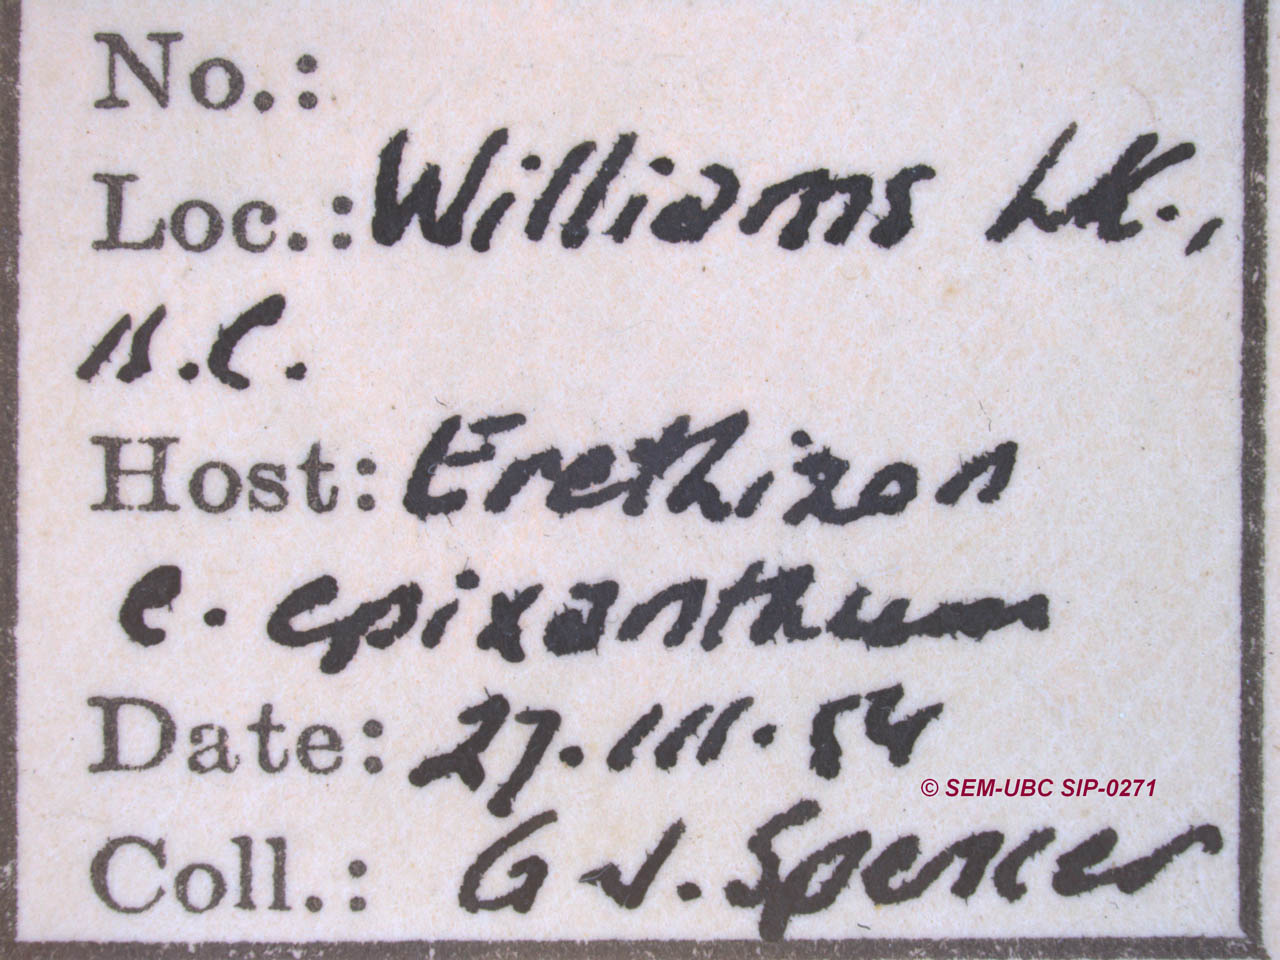 No.:
Loc.: Williams Lk.,
B.C.
Host: Erethizon
e. epixanthum
Date: 27.III.54
© SEM-UBC SIP-0271
Coll.: G J. Spencer